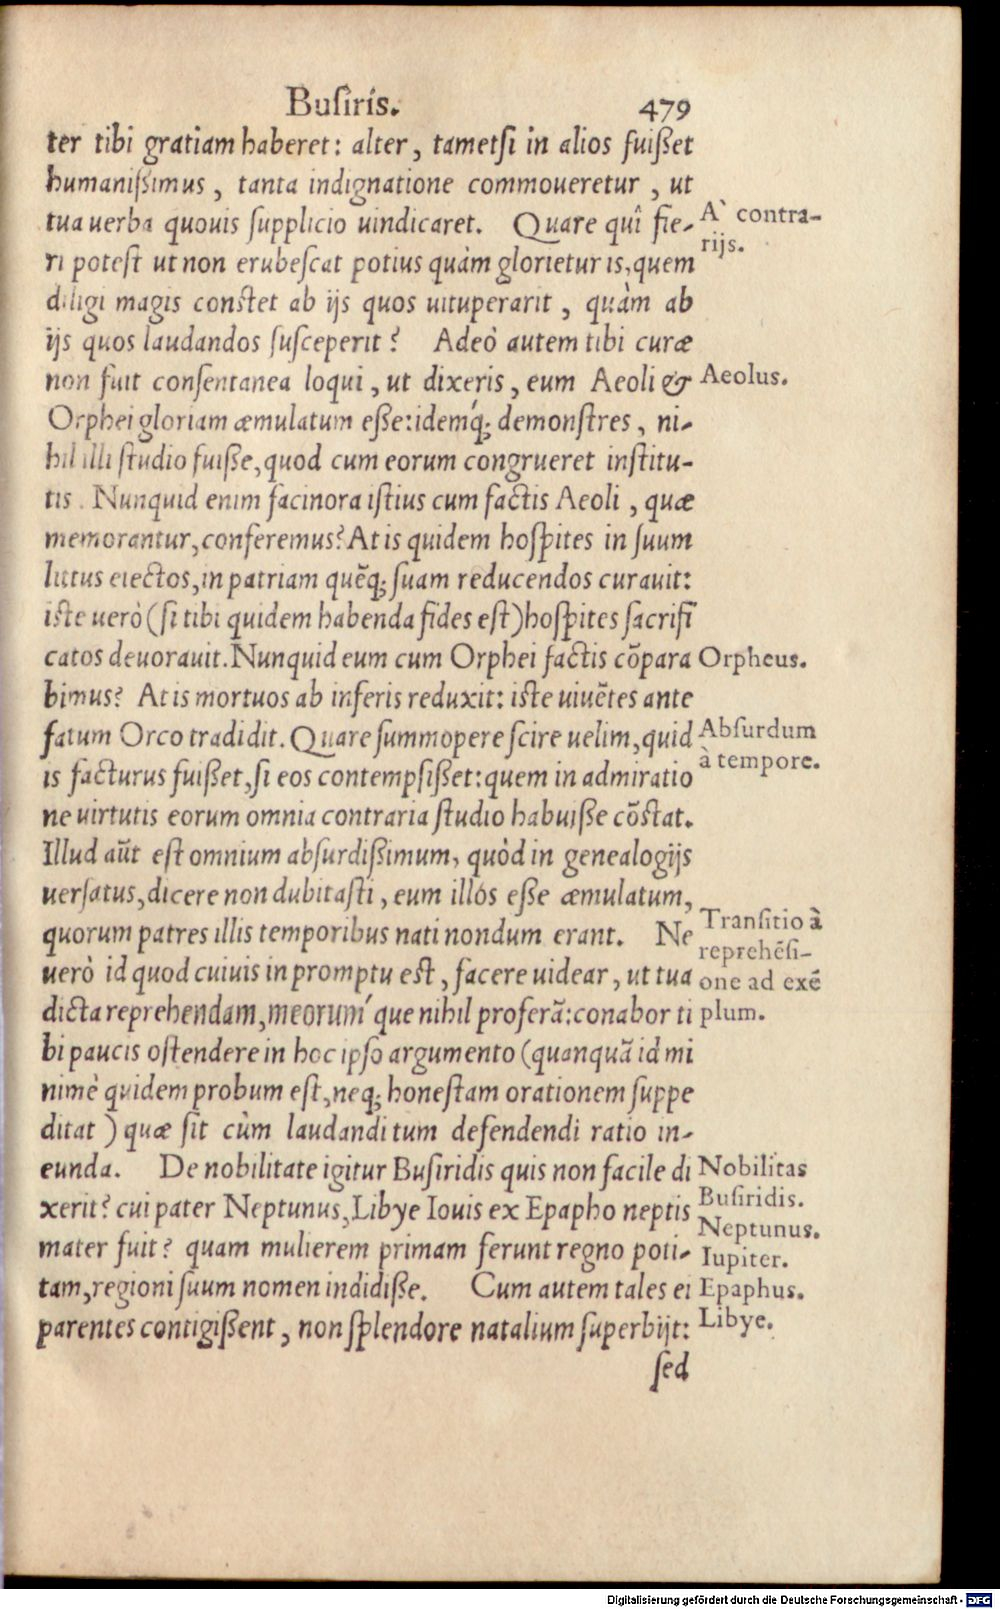 Buſiris. 479
ter tibi gratiam haberet: alter, tametſi in alios fuiſſet
humaniſſimus, tanta indignatione commoueretur, ut
tua uerba quouis ſupplicio uindicaret. Quare quî fie-
ri poteſt ut non erubeſcat potius quàm glorietur is, quem
diligi magis conſtet ab ijs quos uituperarit, quàm ab
ijs quos laudandos ſuſceperit? Adeò autem tibi curæ
non fuit conſentanea loqui, ut dixeris, eum Aeoli &
Orphei gloriam æmulatum eſſe: idemq́; demonſtres, ni-
hil illi ſtudio fuiſſe, quod cum eorum congrueret inſtitu-
tis. Nunquid enim facinora iſtius cum factis Aeoli, quæ
memorantur, conferemus? At is quidem hoſpites in ſuum
littus eiectos, in patriam quẽq; ſuam reducendos curauit:
iſte uerò (ſi tibi quidem habenda fides eſt) hoſpites ſacrifi
catos deuorauit. Nunquid eum cum Orphei factis cõpara
bimus? At is mortuos ab inferis reduxit: iſte uiuẽtes ante
fatum Orco tradidit. Quare ſummopere ſcire uelim, quid
is facturus fuiſſet, ſi eos contempſiſſet: quem in admiratio
ne uirtutis eorum omnia contraria ſtudio habuiſſe cõſtat.
Illud aũt eſt omnium abſurdiſſimum, quòd in genealogijs
uerſatus, dicere non dubitaſti, eum illos eſſe æmulatum,
quorum patres illis temporibus nati nondum erant. Ne
uerò id quod cuiuis in promptu eſt, facere uidear, ut tua
dicta reprehendam, meoruḿ que nihil proferã: conabor ti
bi paucis oſtendere in hoc ipſo argumento (quanquã id mi
nimè quidem probum eſt, neq; honeſtam orationem ſuppe
ditat) quæ ſit cùm laudandi tum defendendi ratio in-
eunda. De nobilitate igitur Buſiridis quis non facile di
xerit? cui pater Neptunus, Libye Iouis ex Epapho neptis
mater fuit? quam mulierem primam ferunt regno poti-
tam, regioni ſuum nomen indidiſſe. Cum autem tales ei
parentes contigiſſent, non ſplendore natalium ſuperbijt:
ſed
A` contra-
rijs.
Aeolus.
Orpheus.
Abſurdum
à tempore.
Tranſitio à
reprehẽſi-
one ad exẽ
plum.
Nobilitas
Buſiridis.
Neptunus.
Iupiter.
Epaphus.
Libye.
Digitalisierung gefördert durch die Deutsche Forschungsgemeinschaft - DFG